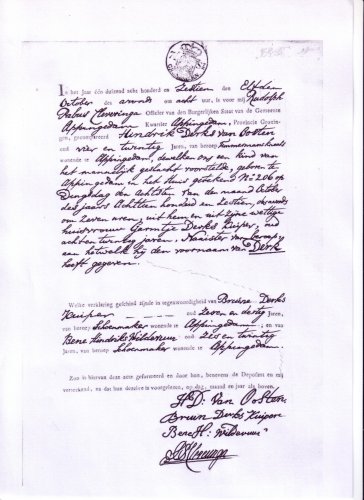 In het Jaar één duizend acht honderd en Zestien den Elfden
October des avonds om acht uur, is voor mij Rudolph
Pabus Cleveringa Officier van den Burgerlijken Staat van de Gemeente
Appingedam, Kwartier Appingedam, Provincie Gronin-
gen, gecompareerd Hindrik Derks van Oosten
oud vier en twintig Jaren, van beroep Timmermansknecht
wonende te Appingedam, dewelke ons een kind van
het mannelijk geslacht voorstelde, geboren te
Appingedam in het Huis getekend No. 206 op
Dingsdag den Achtsten van den maand October
des jaars Achttien honderd en Zestien, des avonds
om Zeven uren, uit hem en uit zijne wettige
huisvrouw Garmtje Derks Kuiper, oud
acht en twintig jaren, Naaister van beroep,
aan hetwelk hij den voornaam van Derk
heeft gegeven.
Welke verklaring geschied zijnde in tegenwoordigheid van Breene Derks
Kuiper oud Zeven en dertig Jaren,
van beroep Schoenmaker wonende te Appingedam; en van
Bene Hendriks Wildeman oud Zes en twintig
Jaren, van beroep Schoenmaker wonende te Appingedam.
Zoo is hiervan deze acte geformeerd en door hen, benevens de Deposant en mij
verteekend, en dat hun dezelve is voorgelezen, op dag, maand en jaar als boven.
H: D: Van Oosten
Breun Derks Kuiper
Bene H: Wildeman